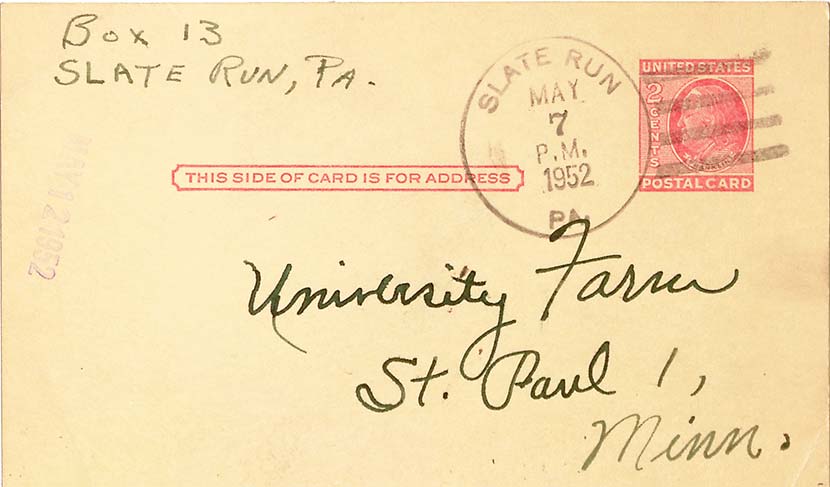 Box 13
SLATE RUN, PA.
SLATE RUN
MAY
7
P.M.
1952
PA.
UNITED STATES
2 CENTS
FRANKLIN
POSTAL CARD
THIS SIDE OF CARD IS FOR ADDRESS
MAY 12 1952
University Farm
St. Paul 1,
Minn.